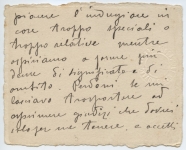 piamo d'indugiare in
cose troppo speciali o
troppo relative mentre
aspiriamo a forme più
di significato e di
ambito. Perdoni se mi
lasciavo trasportare ad
esprimere giudizi che dovrei
solo per me tenere, e accetti